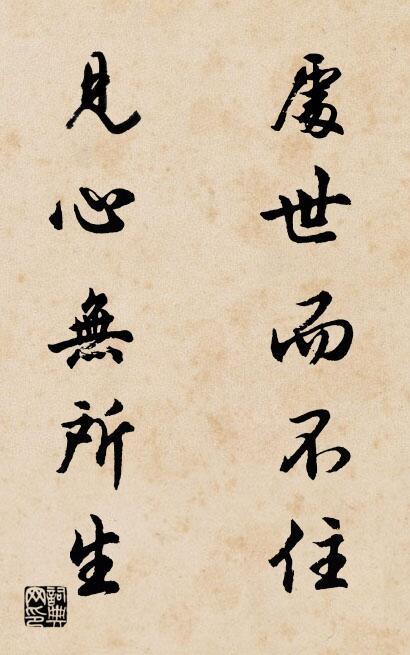 處世而不住
見心無所生
詞典网印